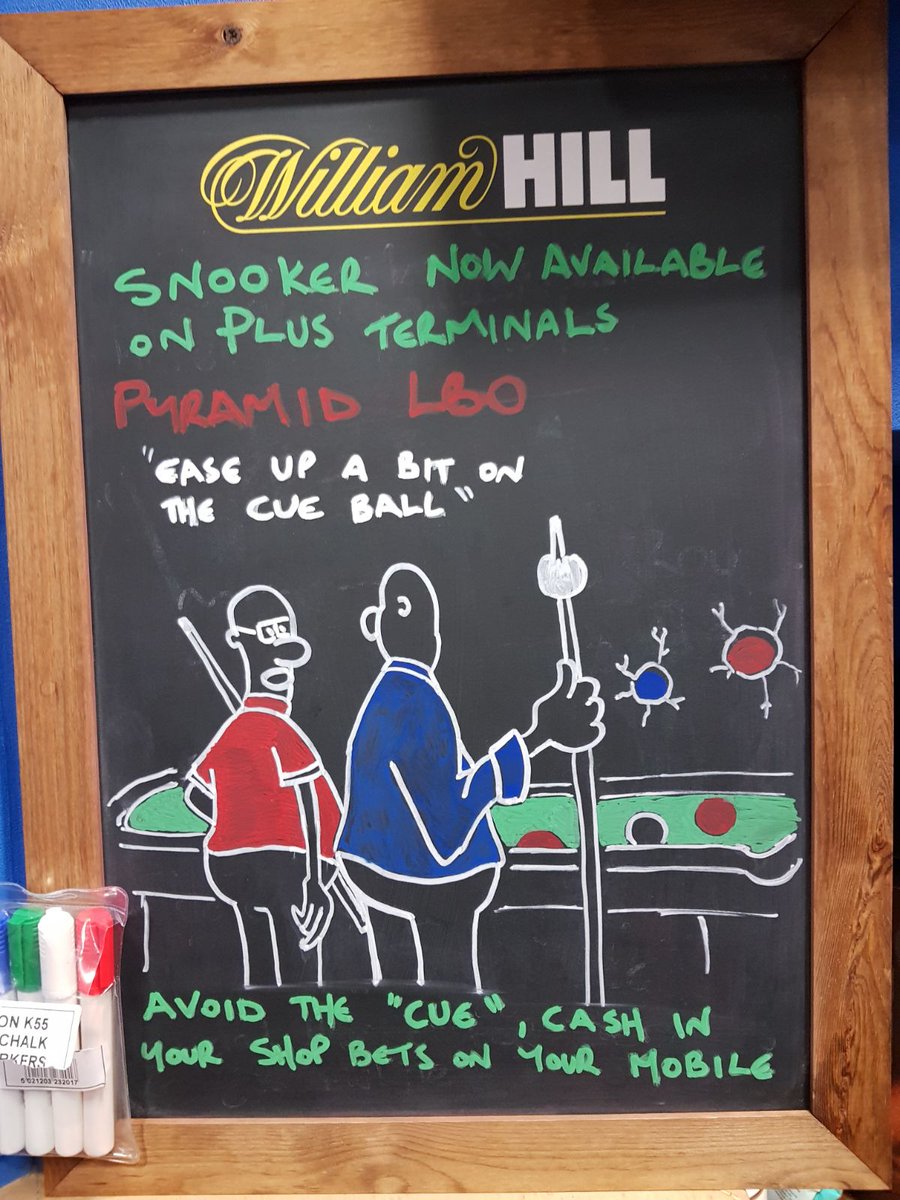 William HILL
SNOOKER NOW AVAILABLE
ON PLUS TERMINALS
PYRAMID LBO
"EASE UP A BIT ON
THE CUE BALL"
AVOID THE "CUE", CASH IN
YOUR SHOP BETS ON YOUR MOBILE
ON K55
CHALK
RKERS
5 021203 232017